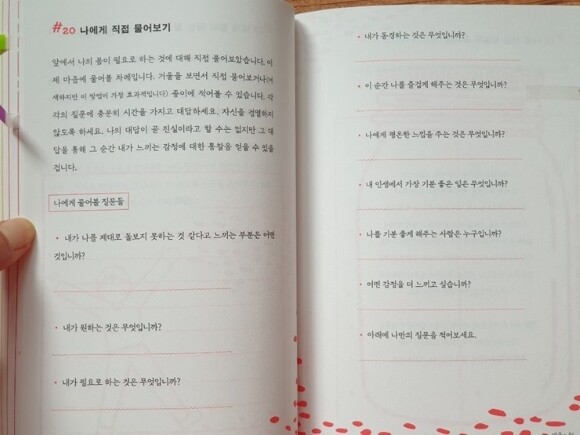 #20 나에게 직접 물어보기
앞에서 나의 몸이 필요로 하는 것에 대해 직접 물어보았습니다. 이
제 마음에 물어볼 차례입니다. 거울을 보면서 직접 물어보거나(어
색하지만 이 방법이 가장 효과적입니다) 종이에 적어볼 수 있습니다. 각
각의 질문에 충분히 시간을 가지고 대답하세요. 자신을 검열하지
않도록 하세요. 나의 대답이 곧 진실이라고 할 수는 없지만 그 대
답을 통해 그 순간 내가 느끼는 감정에 대한 통찰을 얻을 수 있을
겁니다.
나에게 물어볼 질문들
• 내가 나를 제대로 돌보지 못하는 것 같다고 느끼는 부분은 어떤
것입니까?
• 내가 원하는 것은 무엇입니까?
• 내가 필요로 하는 것은 무엇입니까?
• 내가 동경하는 것은 무엇입니까?
• 이 순간 나를 즐겁게 해주는 것은 무엇입니까?
• 나에게 평온한 느낌을 주는 것은 무엇입니까?
• 내 인생에서 가장 기분 좋은 일은 무엇입니까?
• 나를 기분 좋게 해주는 사람은 누구입니까?
• 어떤 감정을 더 느끼고 싶습니까?
• 아래에 나만의 질문을 적어보세요.